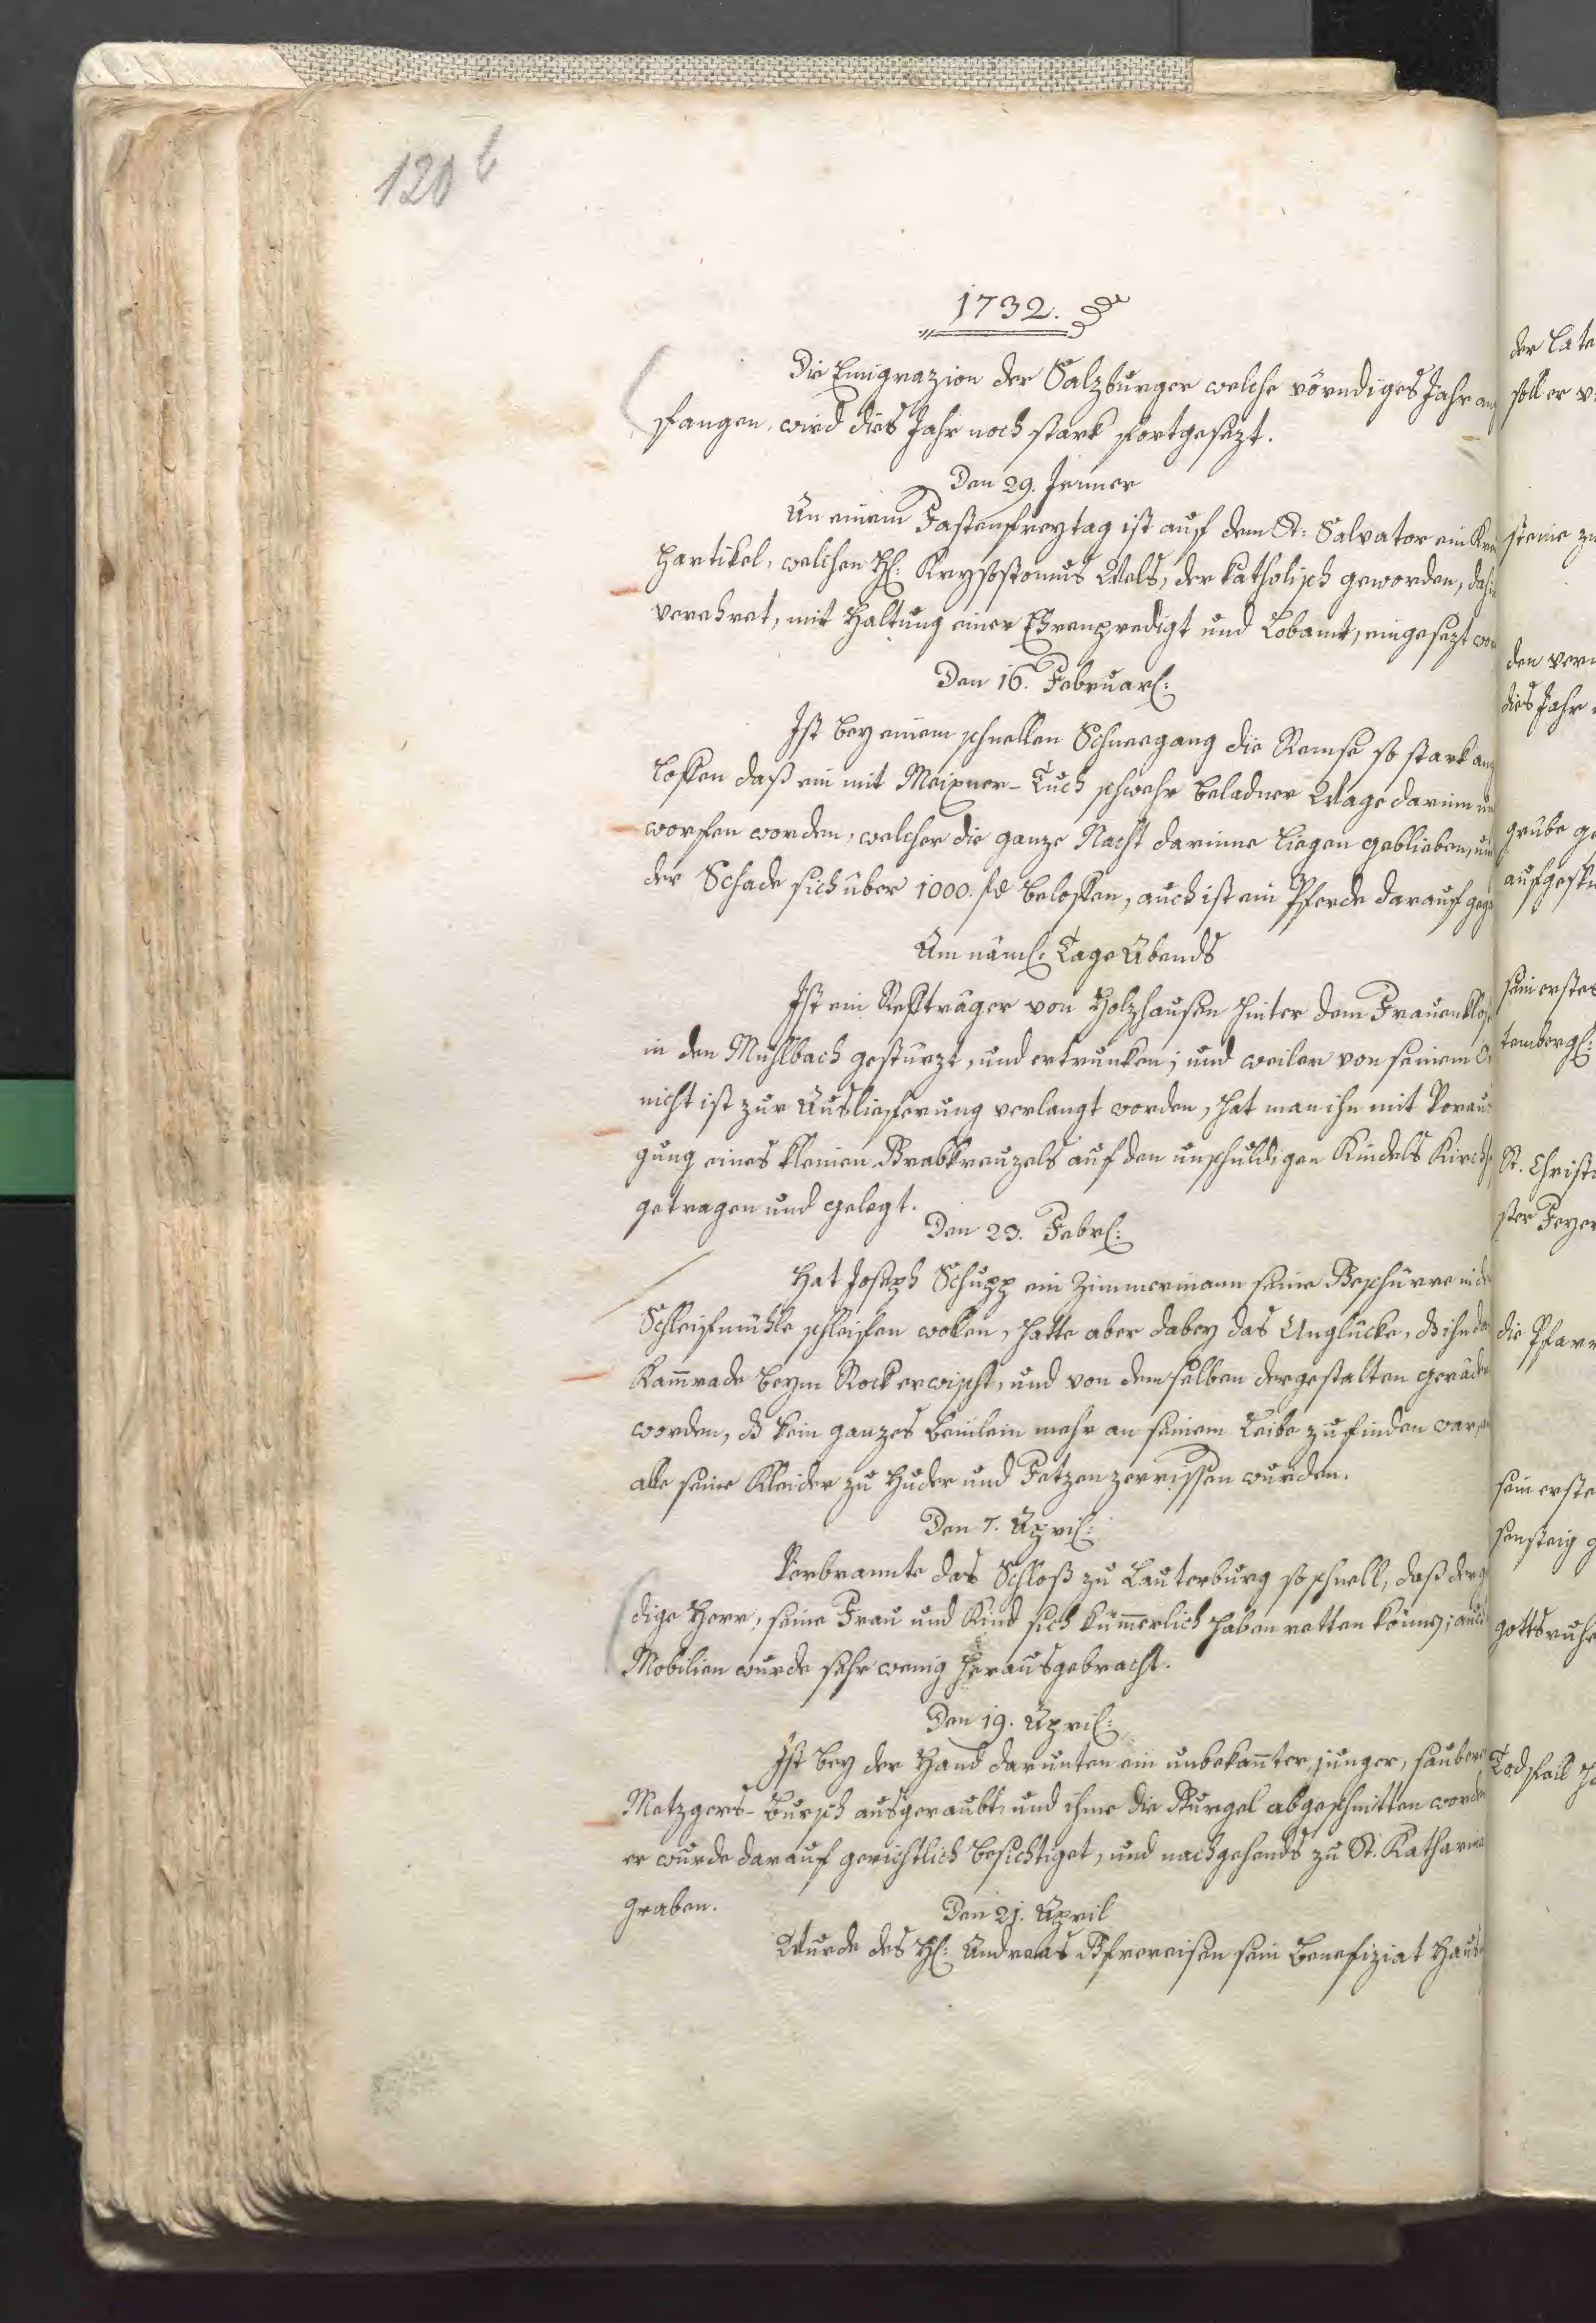 120 b
1732.
Die Emigrazion der Salzburger welche vörndiges Jahr ang
fangen, wird dies Jahr noch stark fortgesezt.
Den 29. Jenner
An einem Fastenfreytag ist auf dem St: Salvator ein
partikel, welchen H: Krysostomus Wels, der katholisch geworden, dahin
verehret, mit Haltung einer Ehrenpredigt und Lobamt, eingesezt wor
Den 16. Februar:
Ist bey einem schnellen Schneegang die Remse so stark ang
loffen daß ein mit Meixner-Tuch schwehr beladner Wage darinn um
worfen worden, welcher die ganze Nacht darinne liegen geblieben, und
der Schade sich über 1000. fl belossen, auch ist ein Pferde darauf gega
Am näml: Tage Abends
Ist ein Reffträger von Holzhausen hinter dem Frauenklos
in den Mühlbach gestürzt, und ertrunken; und weiler von seinem
nicht ist zur Auslieferung verlangt worden, hat man ihn mit Voraus
gung eines kleinen Grabkreuzels auf den unschuldigen Kindels Kirchh
getragen und gelegt.
Den 23. Febr:
Hat Joseph Schupp ein Zimmermann seine Geschürre in der
Schleifmühle schleifen wollen, hatte aber dabey das Unglücke, dß ihn das
Kammrade beym Rock erwischt, und von demselben dergestalten geräder
worden, dß kein ganzes Beinlein mehr an seinem Leibe zufinden war,
alle seine Kleider zu Huder und Fetzen zerrissen wurden.
Den 7. April:
Verbrannte das Schloß zu Lauterburg so schnell, daß der g
dige Herr, seine Frau und Kind sich kümmerlich haben retten können; auch
Mobilien wurde sehr wenig herausgebracht.
Den 19. April:
Ist bey der Hand darunten ein unbekannter, junger, saubere
Metzgers-Bursch ausgeraubt, und ihme die Gurgel abgeschnitten worde
er wurde darauf gerichtlich besichtiget, und nachgehends zu St. Katharina
graben.
Den 21. April
Wurde des H: Andreas Gfrereisen sein Benefiziat Haus
der Late
soll er v
steine zu
den ver
dies Jahr
grube ge
sein erstes
temberg:
St. Christ
ster Feyer
die Pfarr
sein erste
gottsruhe
Todfall